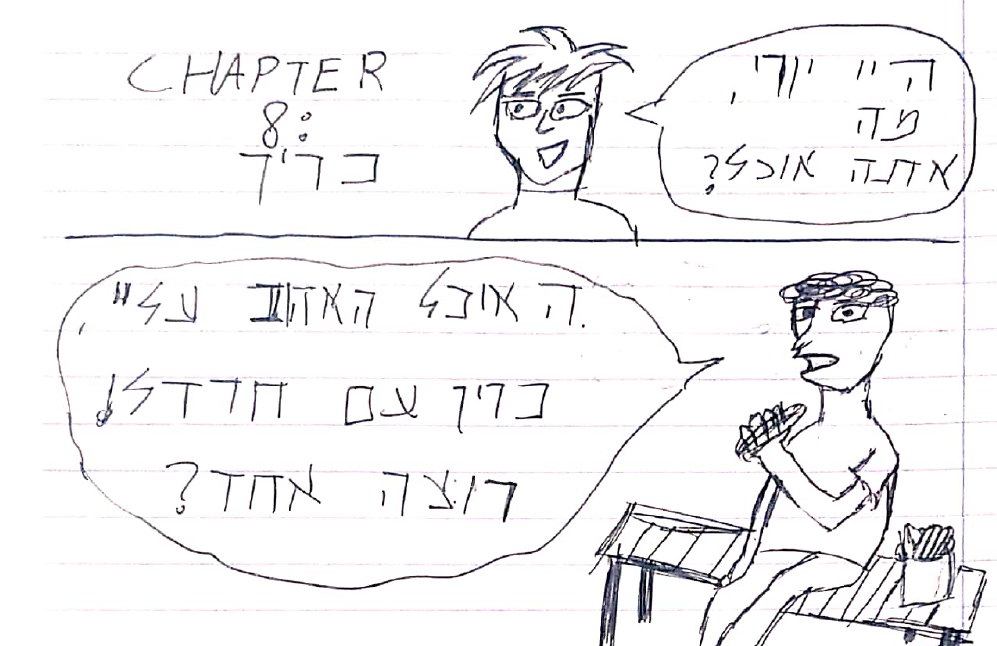 CHAPTER
8:
כריך
היי יורי,
מה
אתה אוכל?
האוכל האהוב עליי,
כריך עם חרדל!
רוצה אחד?